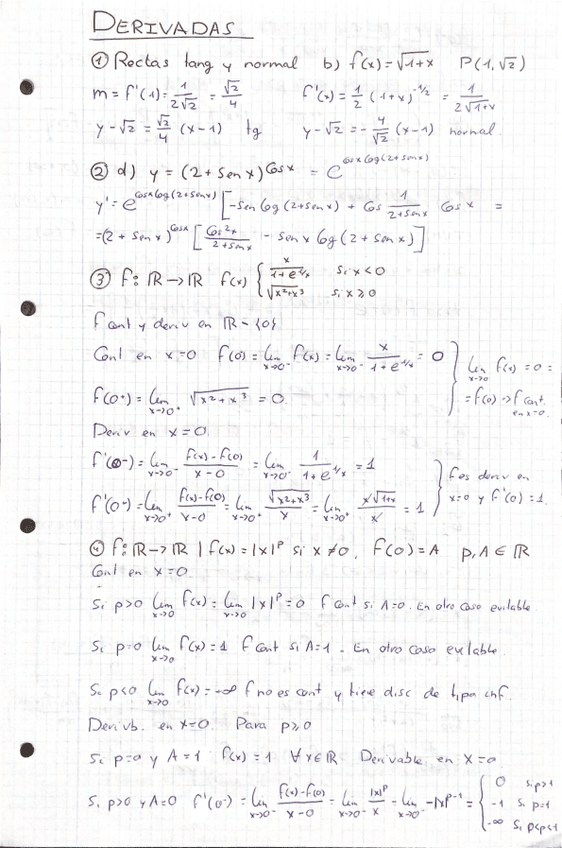 DERIVADAS
① Rectas tang y normal b) f(x)=√1+x P(1,√2)
m = f'(1) = 1/2√2 = √2/4 f'(x) = 1/2 (1+x)^-1/2 = 1/2√1+x
y-√2 = √2/4 (x-1) tg y-√2 = -4/√2 (x-1) normal
② d) y = (2+sen x)^cos x = e^cosx log(2+senx)
y' = e^cosx log(2+senx) [-sen log(2+senx) + cos 1/2+senx cos x =
=(2+sen x)^cosx [cos²x/2+senx - sen x log(2+senx)]
③ f: ℝ→ℝ f(x) { x/1+e^1/x si x<0
√x²+x³ si x≥0
f cont y deriv en ℝ-{0}
Cont en x=0 f(0) = lim x→0- f(x) = lim x→0- x/1+e^1/x = 0
f(0+) = lim x→0+ √x²+x³ = 0
} lim x→0 f(x) = 0 =
= f(0) → f cont.
en x=0.
Deriv en x=0.
f'(0-) = lim x→0- f(x)-f(0)/x-0 = lim x→0- 1/1+e^1/x = 1
f'(0+) = lim x→0+ f(x)-f(0)/x-0 = lim x→0+ √x²+x³/x = lim x→0+ x√1+x/x = 1
} f es deriv en
x=0 y f'(0)=1.
④ f: ℝ→ℝ | f(x) = |x|^p si x≠0, f(0)=A p,A∈ℝ
Cont en x=0
Si p>0 lim x→0 f(x) = lim x→0 |x|^p = 0 f cont si A=0. En otro caso evitable.
Si p=0 lim x→0 f(x) = 1 f cont si A=1. En otro caso evitable.
Si p<0 lim x→0 f(x) = -∞ f no es cont y tiene disc de tipo inf.
Derivb. en x=0. Para p≥0
Si p=0 y A=1 f(x)=1 ∀x∈ℝ Derivable en x=0
Si p>0 y A=0 f'(0-) = lim x→0- f(x)-f(0)/x-0 = lim x→0- |x|^p/x = lim x→0- -|x|^p-1 = { 0 si p>1
-1 si p=1
-∞ si 0<p<1